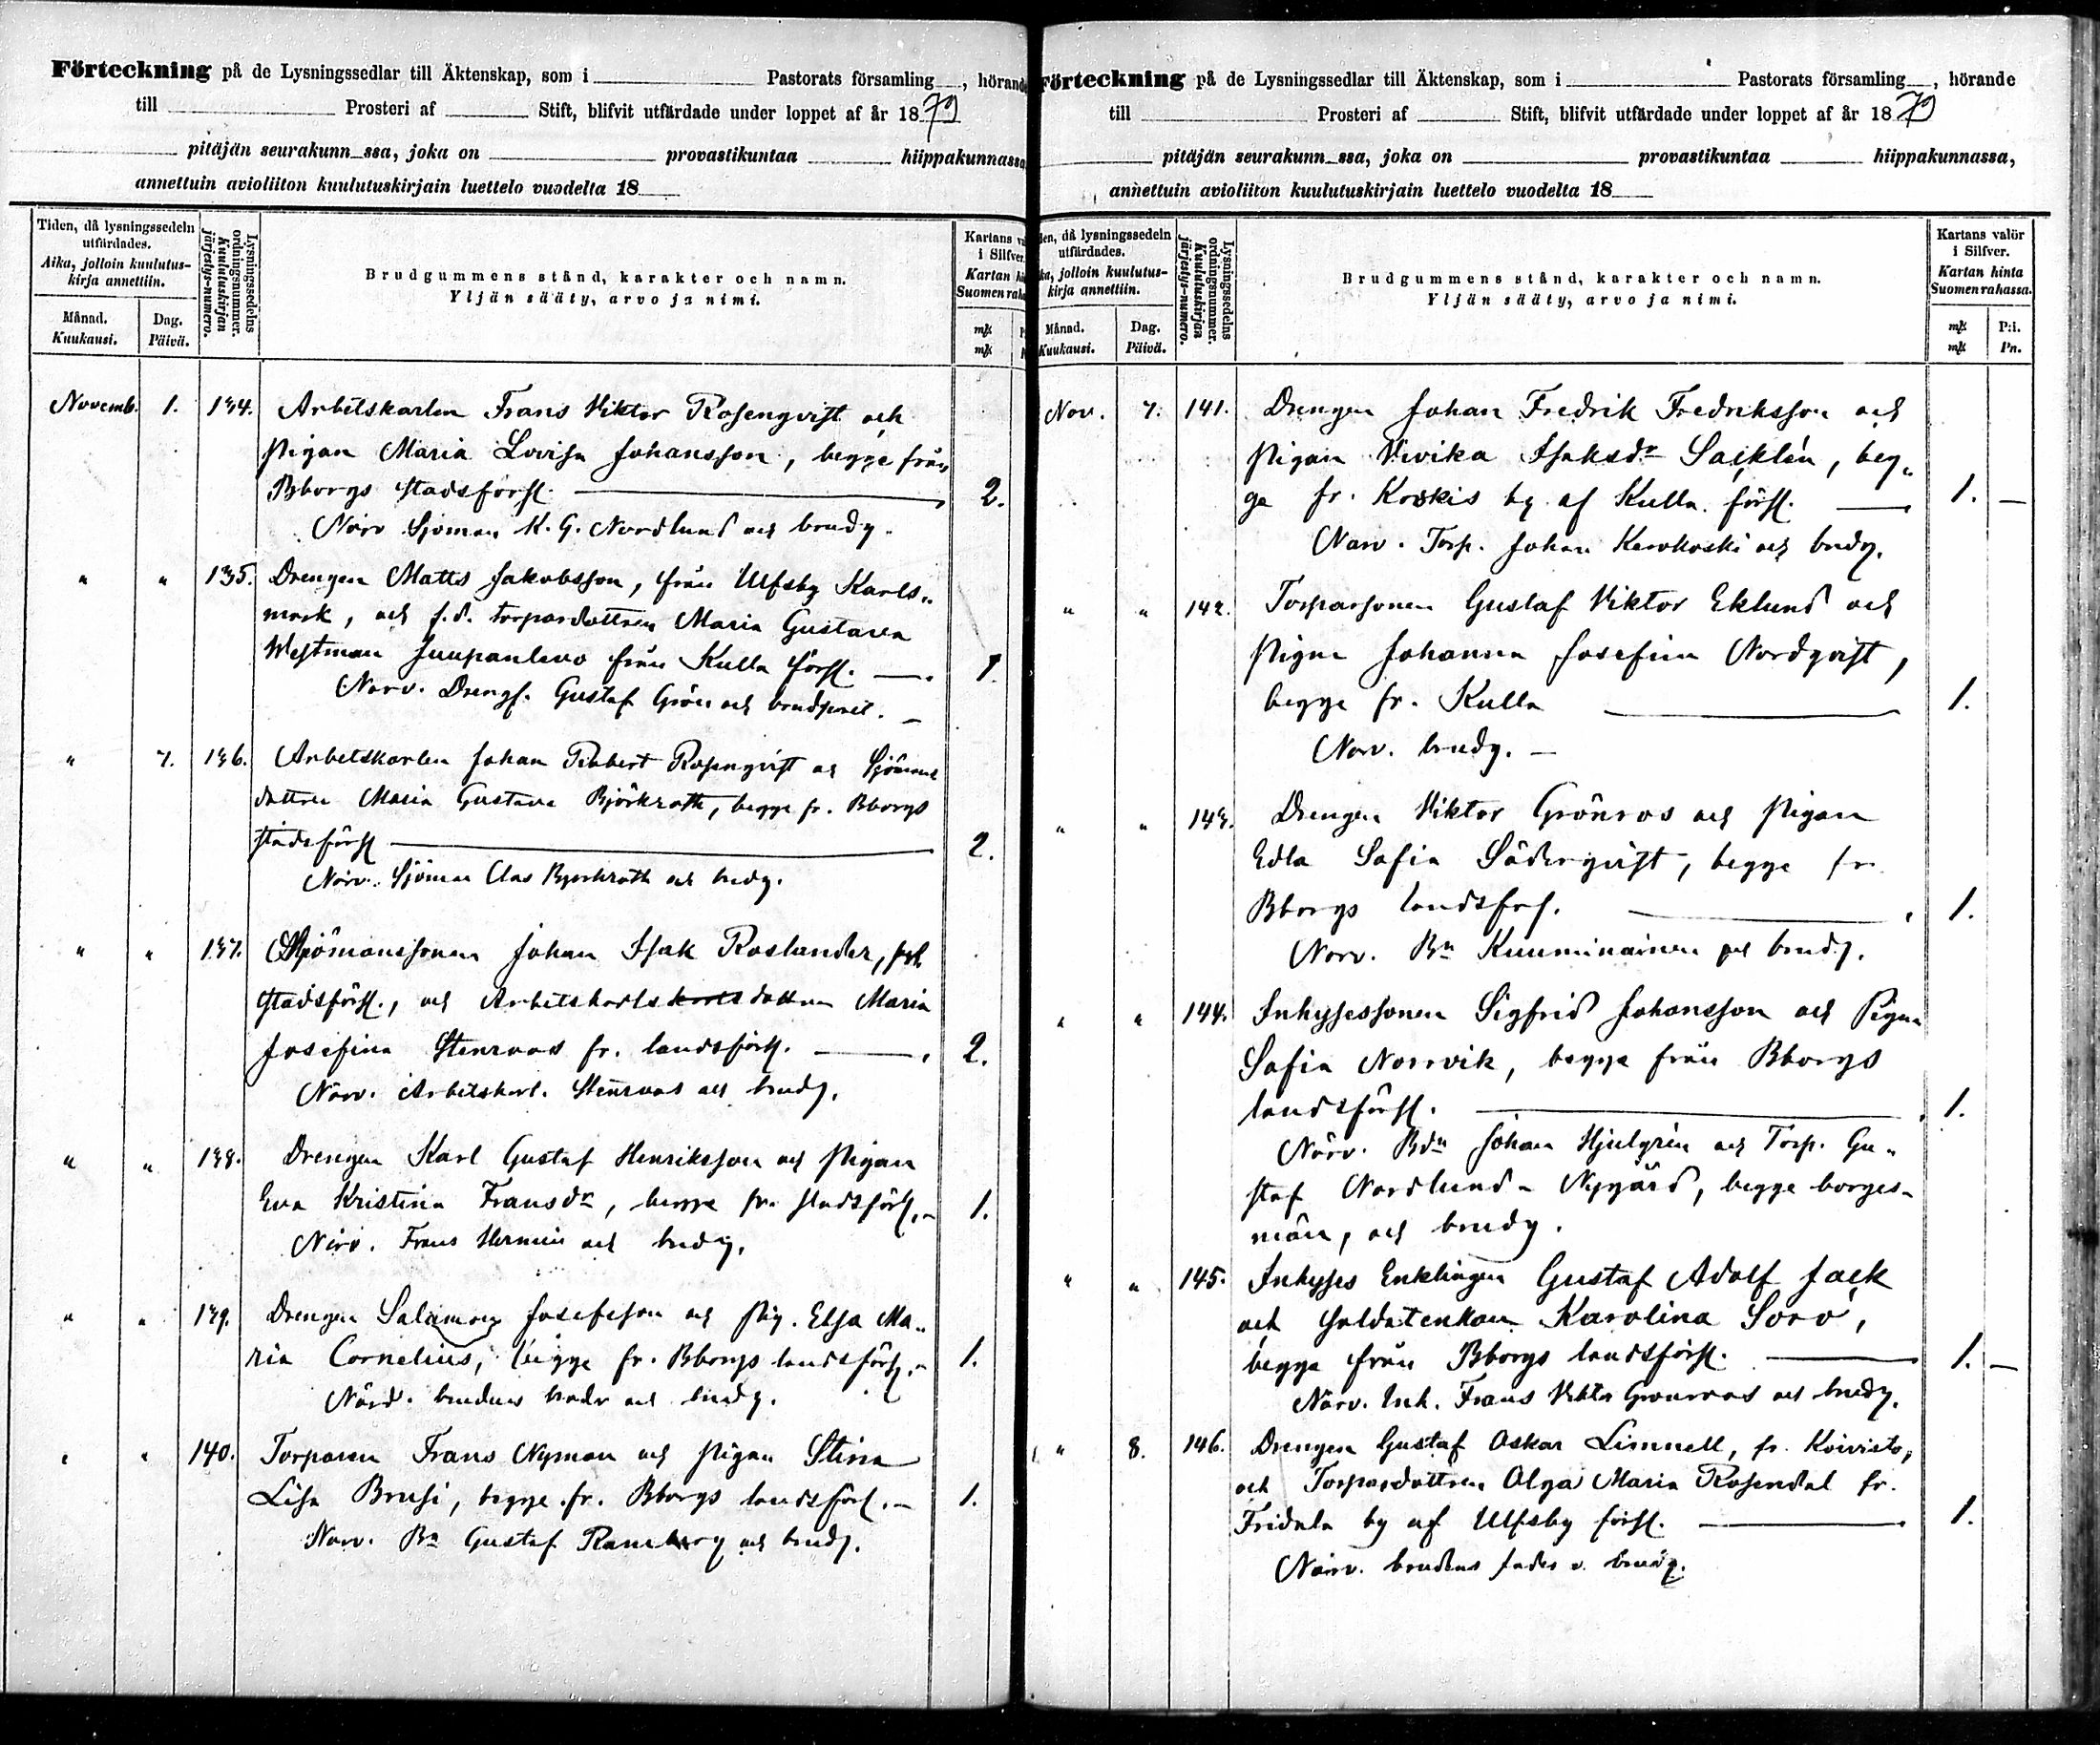 Förteckning på de Lysningssedlar till Äktenskap, som i Pastorats församling, hörande
till Prosteri af Stift, blifvit utfärdade under loppet af år 1879
pitäjän seurakunn ssa, joka on provastikuntaa hiippakunnassa
annettuin avioliiton kuulutuskirjain luettelo vuodelta 18
Tiden, då lysningssedeln utfärdades.
Aika, jolloin kuulutuskirja annettiin.
Månad. Kuukausi.
Dag. Päivä.
Lysningssedelns ordningsnummer.
Kuulutuskirjan järjestys-numero.
Brudgummens stånd, karakter och namn.
Yljän sääty, arvo ja nimi.
Kartans
i Silfver.
Kartan
Suomen
mk
mk
Novemb. 1. 134. Arbetskarlen Frans Viktor Rosenqvist och
pigan Maria Lovisa Johansson, begge från
Bborgs stadsförs. 2.
Närv Sjöman K. G. Nordlund och brudg.
" " 135. Drengen Matts Jakobsson, från Ulfsby Karls„
mark, och f.d. torpardottren Maria Gustava
Westman Juupanlevo från Kulla förs. 1.
Närv. Drengs. Gustaf Grön och
" 7. 136. Arbetskarlen Johan Robert Rosenqvist och Sjömans
dottren Maria Gustava Björkroth, begge fr. Bborgs
stadsförs 2.
Närv. Sjöman Clas Bjorkroth och brudg.
" " 137. Sjömanssonen Johan Isak Roslander,
stadsförs., och Arbetskarls karls dottren Maria
Josefina Stenroos fr. landsförs. 2.
Närv. Arbetskarl. Stenroos och brudg.
" " 138. Drengen Karl Gustaf Henriksson och pigan
Eva Kristina Fransdr, begge fr. stadsförs. 1.
Närv. Frans och brudg.
" " 139. Drengen Salamon Josefsson och pig. Elsa Ma„
ria Cornelius, begge fr. Bborgs landsförs. 1.
Närv. brudens broder och brudg.
" " 140. Torparen Frans Nyman och pigan Stina
Lisa Brusi, begge fr. Bborgs landsförs. 1.
Närv. Bn Gustaf Ramberg och brudg.
Förteckning på de Lysningssedlar till Äktenskap, som i Pastorats församling, hörande
till Prosteri af Stift, blifvit utfärdade under loppet af år 1879
pitäjän seurakunn ssa, joka on provastikuntaa hiippakunnassa,
annettuin avioliiton kuulutuskirjain luettelo vuodelta 18
då lysningssedeln utfärdades.
jolloin kuulutuskirja annettiin.
Månad. Kuukausi.
Dag. Päivä.
Lysningssedelns ordningsnummer.
Kuulutuskirjan järjestys-numero.
Brudgummens stånd, karakter och namn.
Yljän sääty, arvo ja nimi.
Kartans valör
i Silfver.
Kartan hinta
Suomen rahassa.
mk P:i.
mk Pn.
Nov. 7. 141. Drengen Johan Fredrik Fredriksson och
pigan Vivika Isaksdr Sacklén, beg„
ge fr. Koskis by af Kulla förs. 1. —
Närv. Torp. Johan Karvkoski och brudg.
" " 142. Torparsonen Gustaf Viktor Eklund och
pigan Johanna Josefina Nordqvist,
begge fr. Kulla 1.
Närv. brudg. —
" " 143. Drengen Viktor Grönros och pigan
Edla Sofia Söderqvist, begge fr.
Bborgs landsförs. 1.
Närv. Bn Kuuminainen och brudg.
" " 144. Inhysessonen Sigfrid Johansson och Pigan
Sofia Norrvik, begge från Bborgs
landsförs. 1.
Närv. Bdn Johan Hjulgrén och Torp. Gu„
staf Nordlund - Nygård, begge borges-
män, och brudg.
" " 145. Inhyses Enklingen Gustaf Adolf Jack
och Soldatenkan Karolina Soro,
begge från Bborgs landsförs. 1. —
Närv. Inh. Frans Viktor Gronroos och brudg.
" 8. 146. Drengen Gustaf Oskar Limnell, fr. Koivisto,
och Torpardottren Olga Maria Rosendal fr.
Fridala by af Ulfsby förs. 1.
Närv. brudens fader o. brudg.